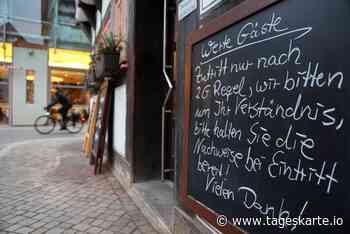 Werte Gäste
Zutritt nur nach
2G Regel, wir bitten
um Ihr Verständnis,
bitte halten Sie die
Nachweise bei Eintritt
bereit!
Vielen Dank!
www.tageskarte.io